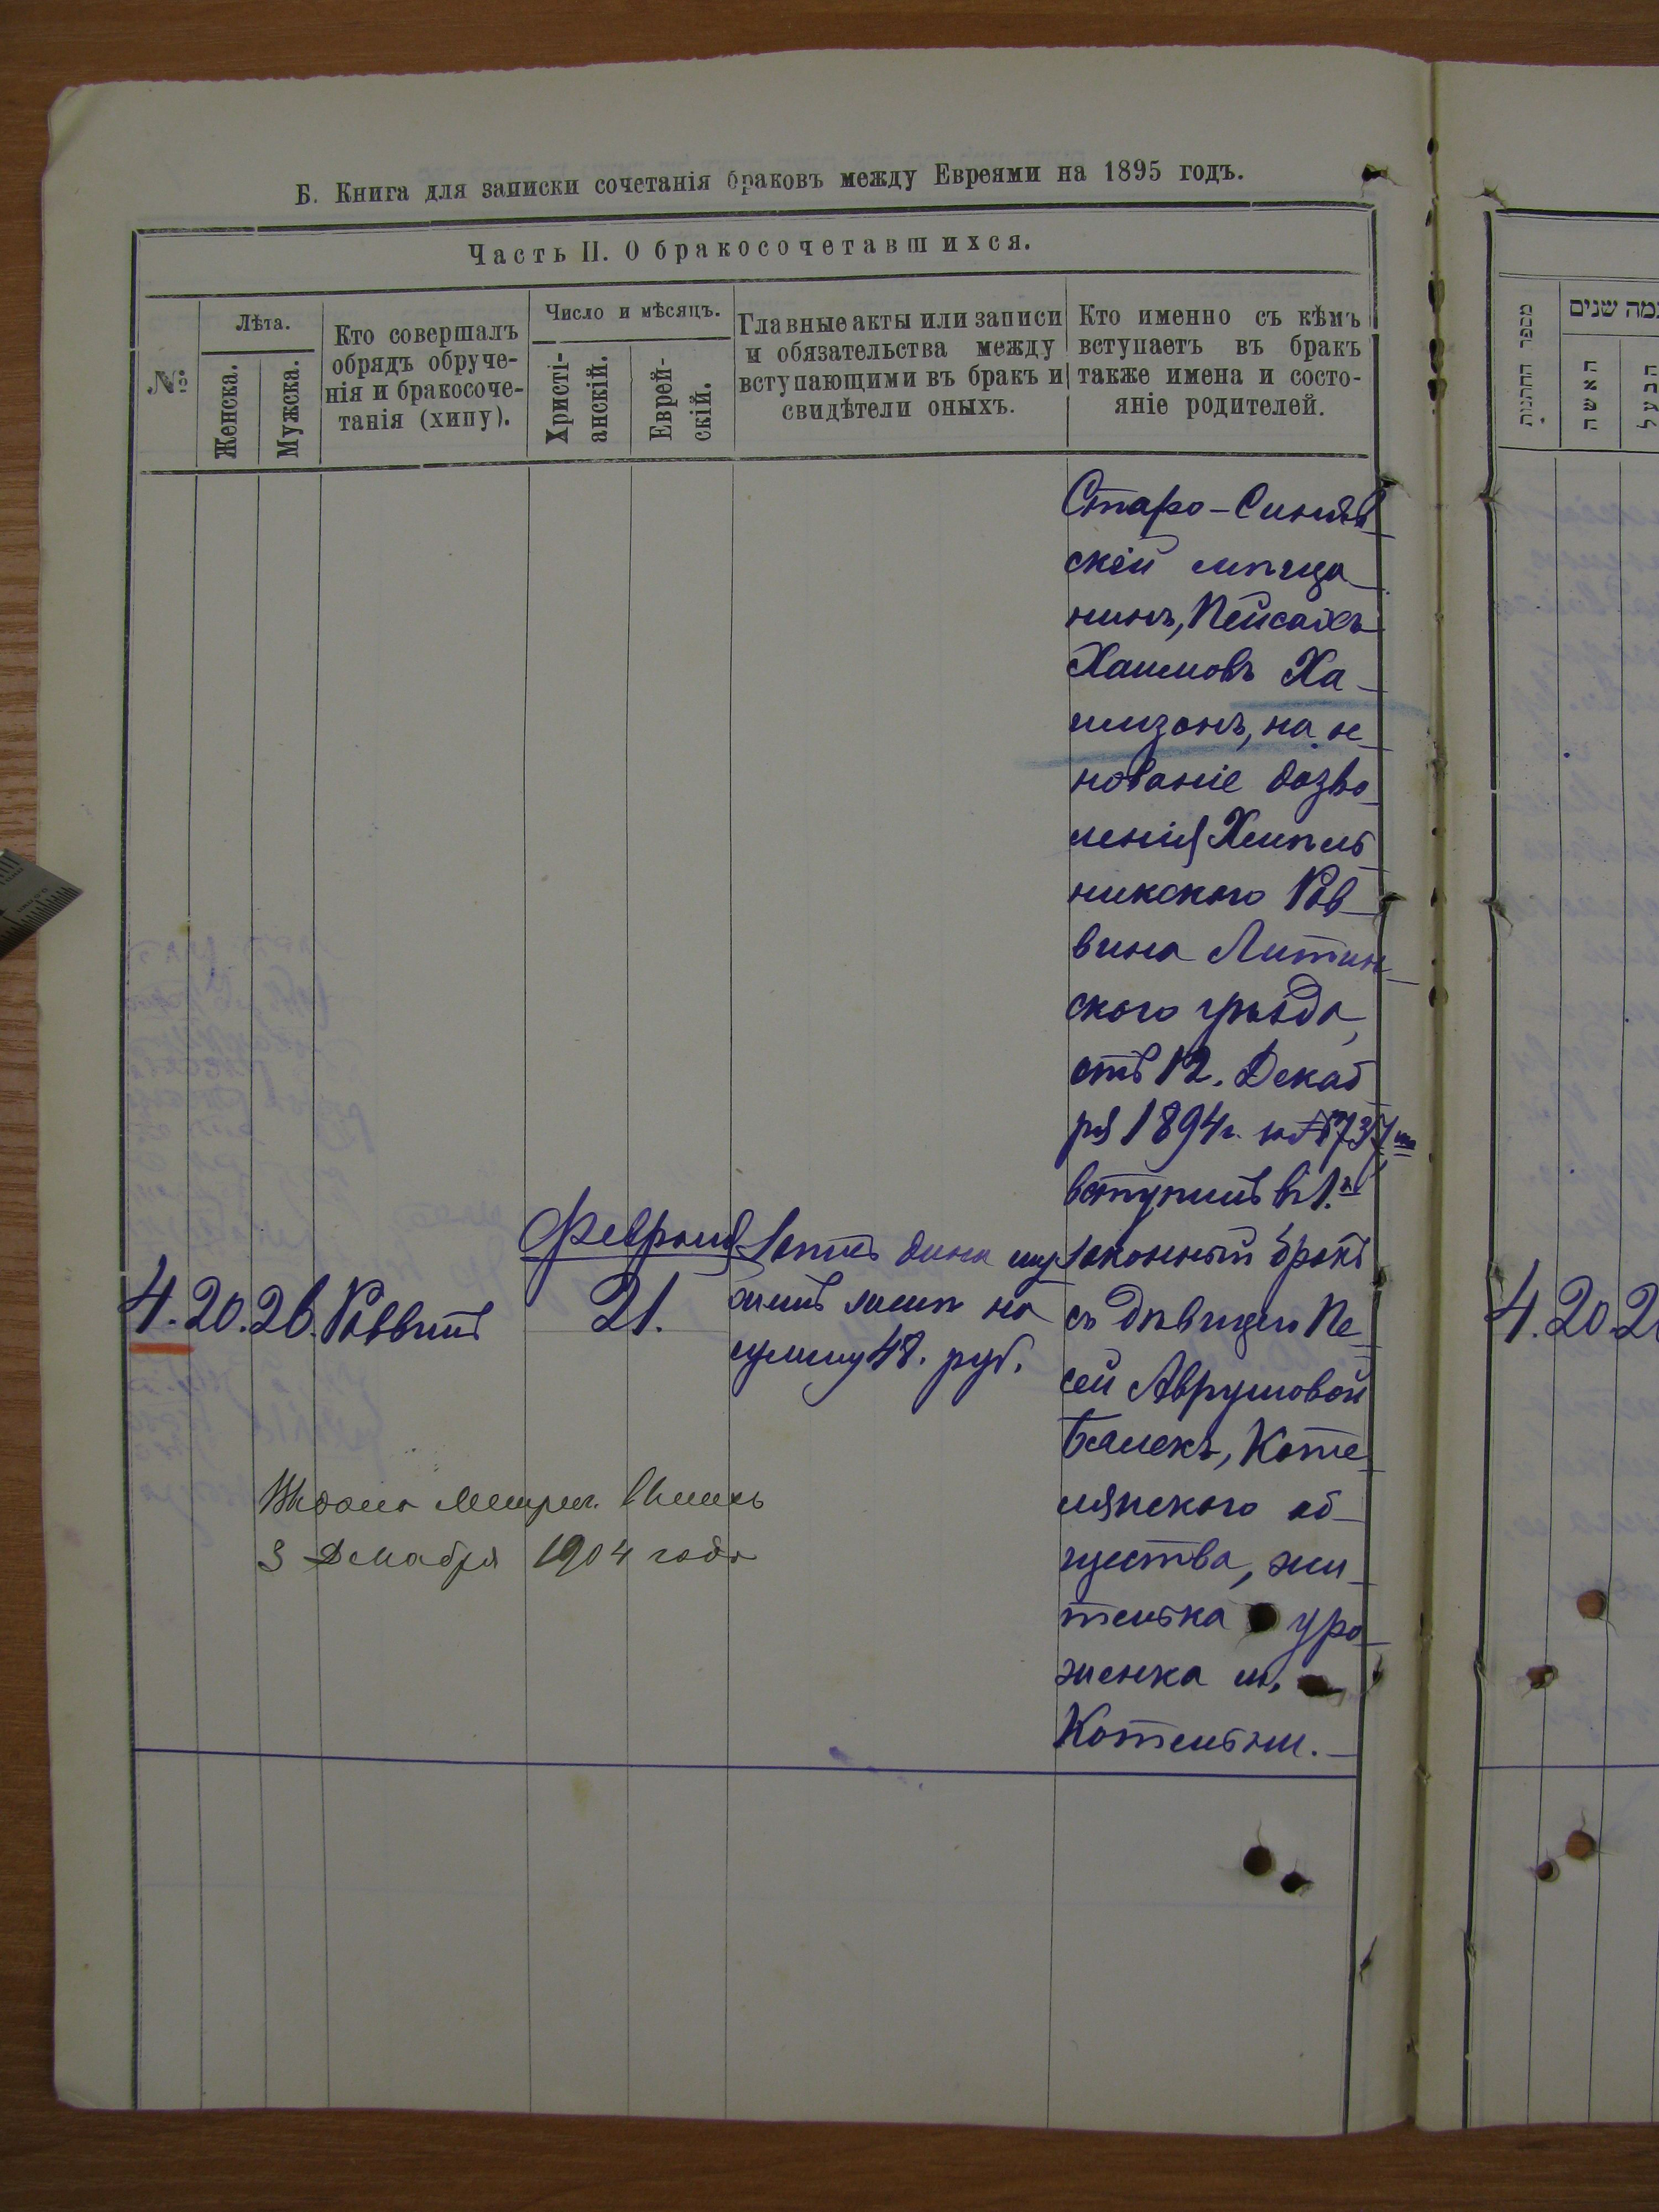 Б. Книга для записки сочетанія браковъ между Евреями на 1895 годъ.
Часть II. О бракосочетавшихся.
№
Лѣта.
Женска.
Мужска.
Кто совершалъ
обрядъ обруче-
нія и бракосоче-
танія (хипу).
Число и мѣсяцъ.
Христі-
анскій.
Еврей-
скій.
Главные акты или записи
и обязательства между
вступающими въ бракъ и
свидѣтели оныхъ.
Кто именно съ кѣмъ
вступаетъ въ бракъ
также имена и состо-
яніе родителей.
4. 20. 26. Раввинъ
Февраля
21.
Запись дана му
жемъ женѣ на
сумму 48. руб.
Старо-Синяв
скій мѣща
нинъ, Пейсахъ
Хаимовъ Ха-
мизонъ, на ос
нованіе дозво
ленія Хмѣль
никского Рав
вина Литин
ского уѣзда,
отъ 12. Декаб
ря 1894г. за №737
вступилъ въ 1.й
законный бракъ
съ дѣвицею Пе
сей Аврумовой
Балекъ, Коте
лянского об-
щества, жи-
телька уро
женка м.
Котельни.
Выдана Метрич. Выпись
3 Декабря 1904 года
מספר החתונות
כמה שנים
האשה
הבעל
4. 20. 2